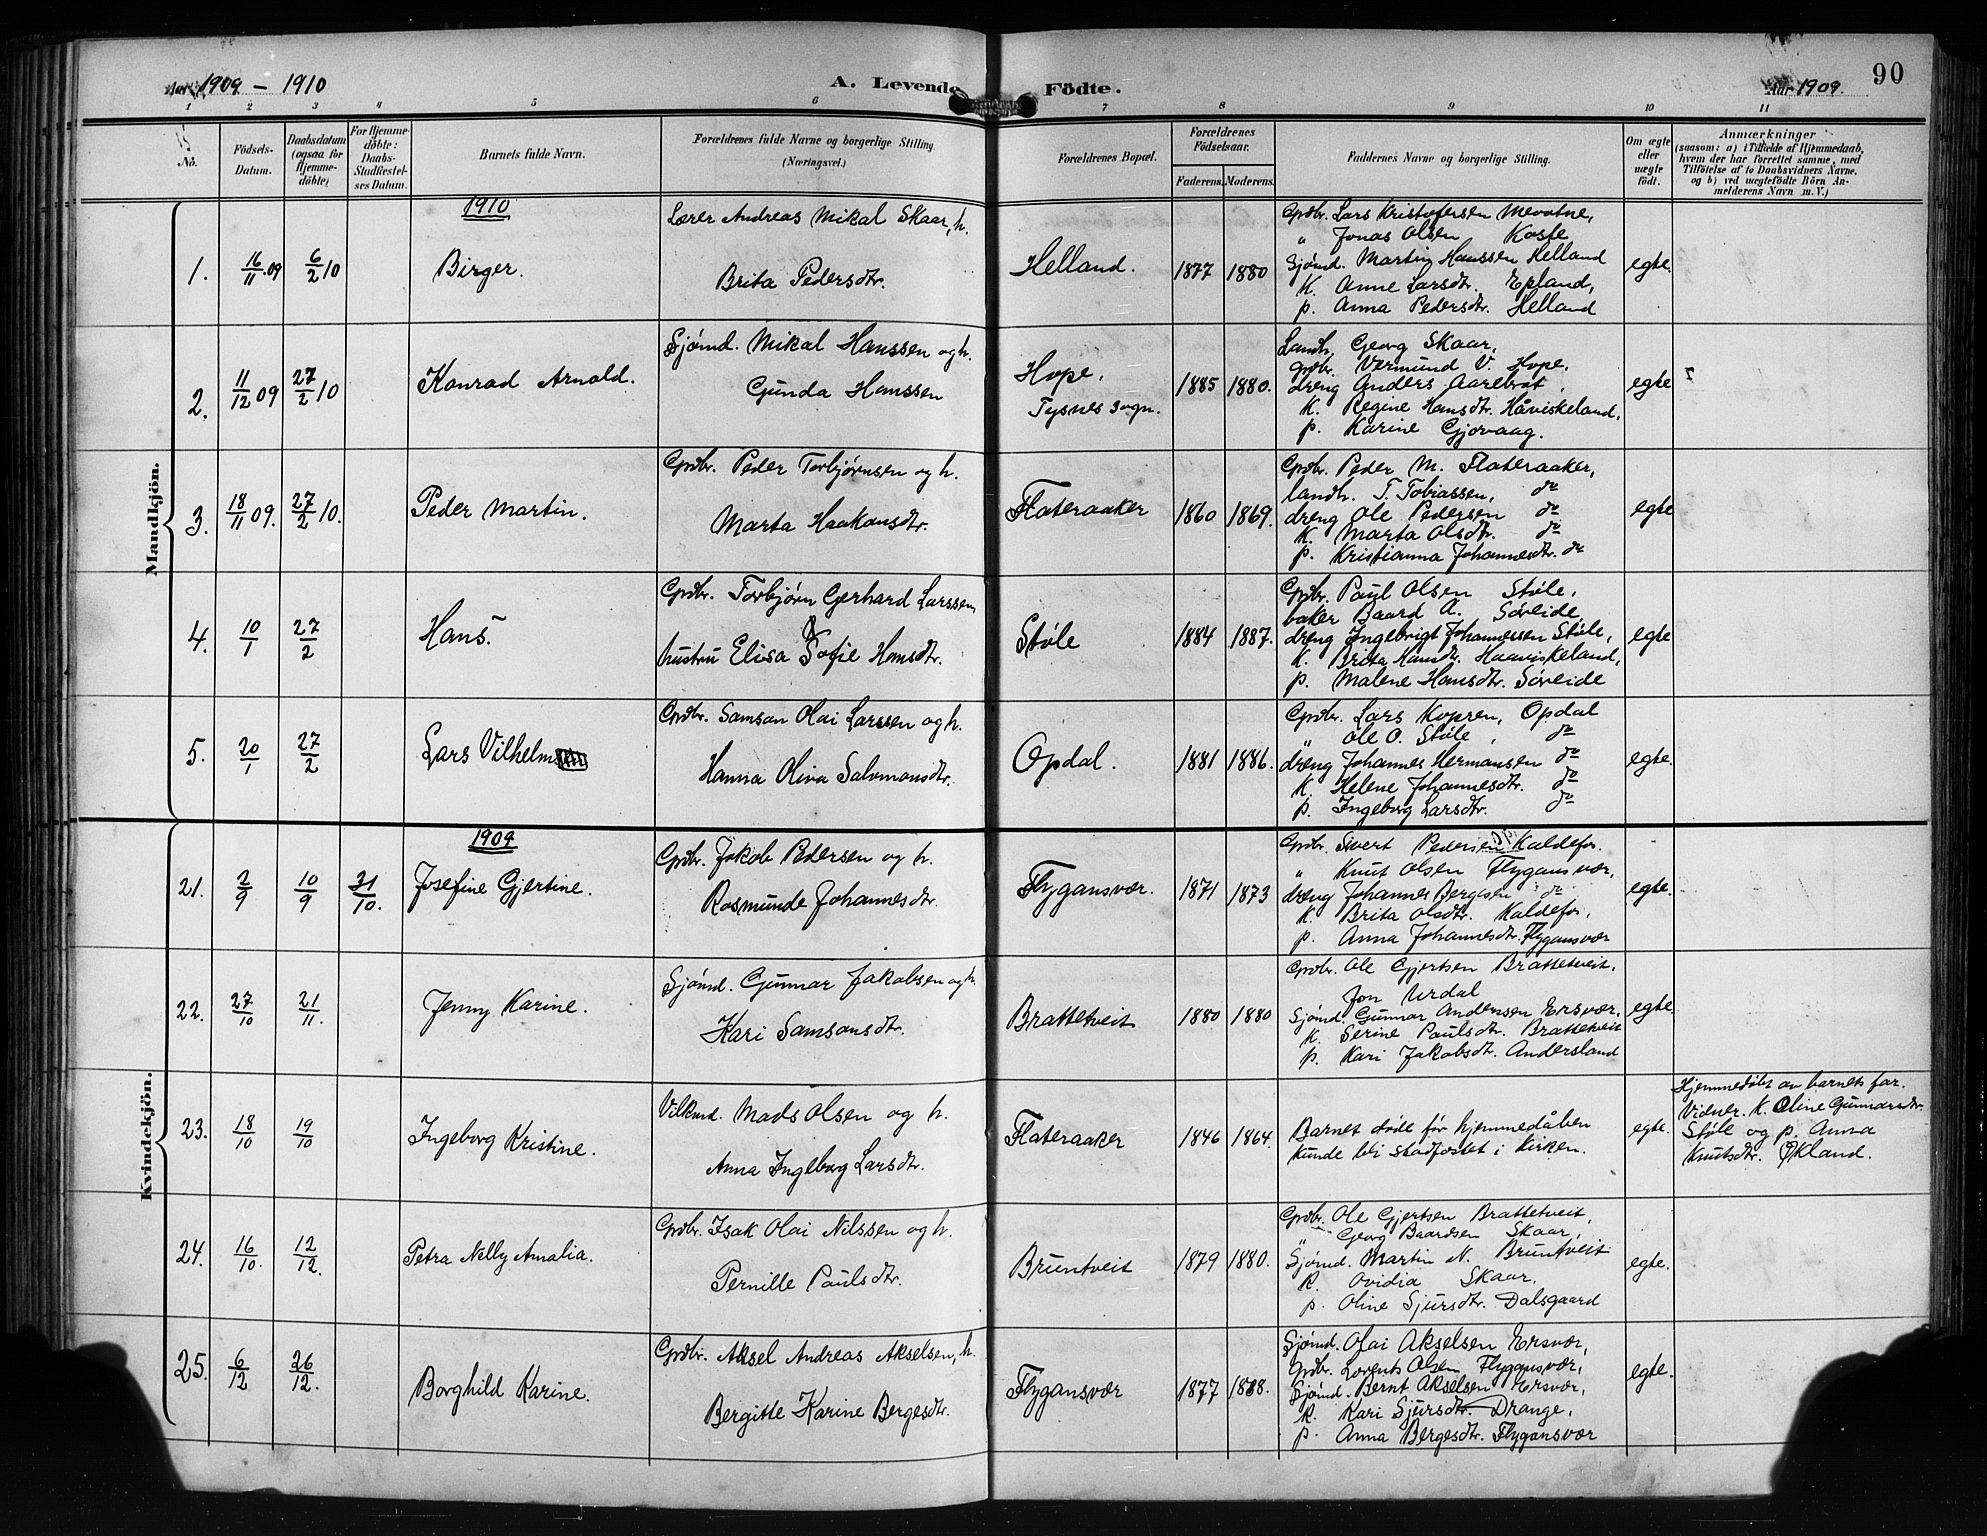 Aar 1909 – 1910
A. Levende Födte.
Aar 1909.
90
1 2 3 4 5 6 7 8 9 10 11
No.
Födsels-
Datum.
Daabsdatum
(ogsaa for
Hjemme-
döbte)
For Hjemme-
döbte:
Daabs-
Stadfæstel-
ses Datum.
Barnets fulde Navn.
Forældrenes fulde Navne og borgerlige Stilling.
(Næringsvei.)
Forældrenes Bopæl.
Forældrenes
Födselsaar.
Faderens. Moderens.
Faddernes Navne og borgerlige Stilling.
Om ægte
eller
uægte
født.
Anmærkninger
(saasom: a) i Tilfælde af Hjemmedaab,
hvem der har forrettet samme, med
Tilföielse af to Daabsvidners Navne.
og b) ved uægtefödte Börn An-
melderens Navn m. V.)
Mandkjön.
1910
1. 16/11 09 6/2 10
Birger.
Lærer Andreas Mikal Skaar, h.
Brita Pedersdtr.
Helland.
1877 1880
Gdbr. Lars Kristofersen Mevatne,
" Jonas Olsen Koste
Sjømd. Martin Hanssen Helland
K. Anne Larsdtr. Epland,
p. Anna Pedersdtr. Helland
egte.
2. 11/12 09 27/2 10
Konrad Arnold.
Sjømd. Mikal Hanssen og h.
Gunda Hanssen
Hope,
Tysnes sogn.
1885 1880.
Landh. Georg Skaar,
Gdbr. Vermund V. Hope,
dreng Anders Aarebrot,
K. Regine Hansdtr. Håviskeland,
p. Karine Gjøvaag.
egte
3. 18/11 09. 27/2 10.
Peder Martin.
Gdbr. Peder Torbjørnsen og h.
Marta Haakonsdtr.
Flateraaker
1860 1869.
Gdbr. Peder M. Flateraaker,
landh. T. Tobiassen, do
dreng Ole Pedersen do
K. Marta Olsdtr. do
p. Kristianna Johannesdtr. do
egte
4. 10/1 27/2
Hans.
Gdbr. Torbjørn Gerhard Larssen,
hustru Elisa Sofie Hansdtr.
Støle
1884 1887.
Gdbr. Paul Olsen Støle,
baker Baard A. Søreide,
dreng Ingebrigt Johannessen Støle,
K. Brita Hansdtr. Haaviskeland,
p. Malene Hansdtr. Søreide
egte
5. 20/1 27/2
Lars Vilhelm
Gdbr. Samson Olai Larssen og h.
Hanna Oliva Salomonsdtr.
Opdal.
1881 1886.
Gdbr. Lars Kopren, Opdal
" Ole O. Støle, do
dreng Johannes Hermansen do
K. Helene Johannesdtr. do
p. Ingeborg Larsdtr. do
egte.
Kvindekjön.
1909
21. 2/9 10/9 31/10.
Josefine Gjertine.
Gdbr. Jakob Pedersen og h.
Rasmunde Johannesdtr.
Flygansvær.
1871 1873
Gdbr. Sivert Pedersen Kaldefos.
" Knut Olsen Flygansvær,
dreng Johannes Bergesen do
K. Brita Olsdtr. Kaldefos,
p. Anna Johannesdtr. Flygansvær
egte.
22. 27/10 21/11.
Jenny Karine.
Sjømd. Gunnar Jakobsen og h.
Kari Samsonsdtr.
Brattetveit
1880 1880
Gdbr. Ole Gjertsen Brattetveit,
Jon Urdal
Sjømd. Gunnar Anderssen Ersvær,
K. Serine Paulsdtr. Brattetveit
p. Kari Jakobsdtr. Andersland
egte.
23. 18/10 19/10
Ingeborg Kristine.
Vilkmd. Mads Olsen og h.
Anna Ingeborg Larsdtr.
Flateraaker
1846 1864.
Barnet døde før hjemmedåben
kunde bli stadfæstet i kirken.
egte.
Hjemmedøbt av barnets far.
Vidner. K. Oline Gunnarsdtr.
Støle og p. Anna
Knutsdtr. Økland.
24. 16/10. 12/12.
Petra Nelly Amalia.
Gdbr. Isak Olai Nilssen og h.
Pernille Paulsdtr.
Bruntveit
1879 1880.
Gdbr. Ole Gjertsen Brattetveit,
" Georg Baardsen Skaar,
Sjømd. Martin N. Bruntveit
K. Ovidia Skaar.
p. Oline Sjursdtr. Dalsgaard
egte.
25. 6/12 26/12.
Borghild Karine.
Gdbr. Aksel Andreas Akselsen, h.
Bergitte Karine Bergesdtr.
Flygansvær
1877 1888.
Sjømd. Olai Akselsen Ersvær,
Gdbr. Lorents Olsen Flygansvær,
Sjømd. Bernt Akselsen Ersvær,
K. Kari Sjursdtr. Drange,
p. Anna Bergesdtr. Flygansvær
egte.